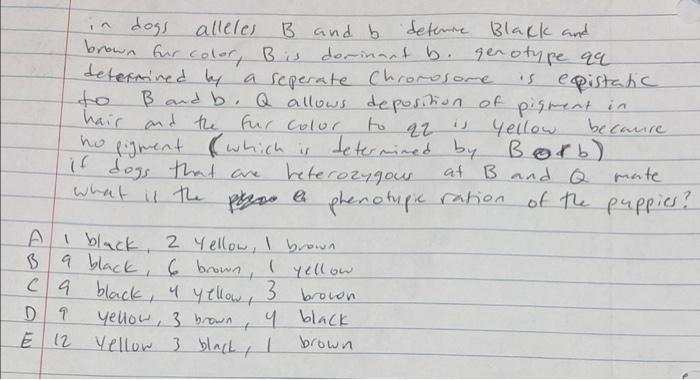 in dogs alleles B and b determe Black and
brown fur color, B is dominant b. genotype qq
determined by a seperate Chromosome is epistatic
to B and b. Q allows deposition of pigment in
hair and the fur color to qq is yellow because
no pigment (which is determined by B or b)
if dogs that are heterozygous at B and Q mate
what is the phenotypic ration of the puppies?
A 1 black, 2 yellow, 1 brown
B 9 black, 6 brown, 1 yellow
C 9 black, 4 yellow, 3 brown
D 9 yellow, 3 brown, 4 black
E 12 yellow 3 black, 1 brown